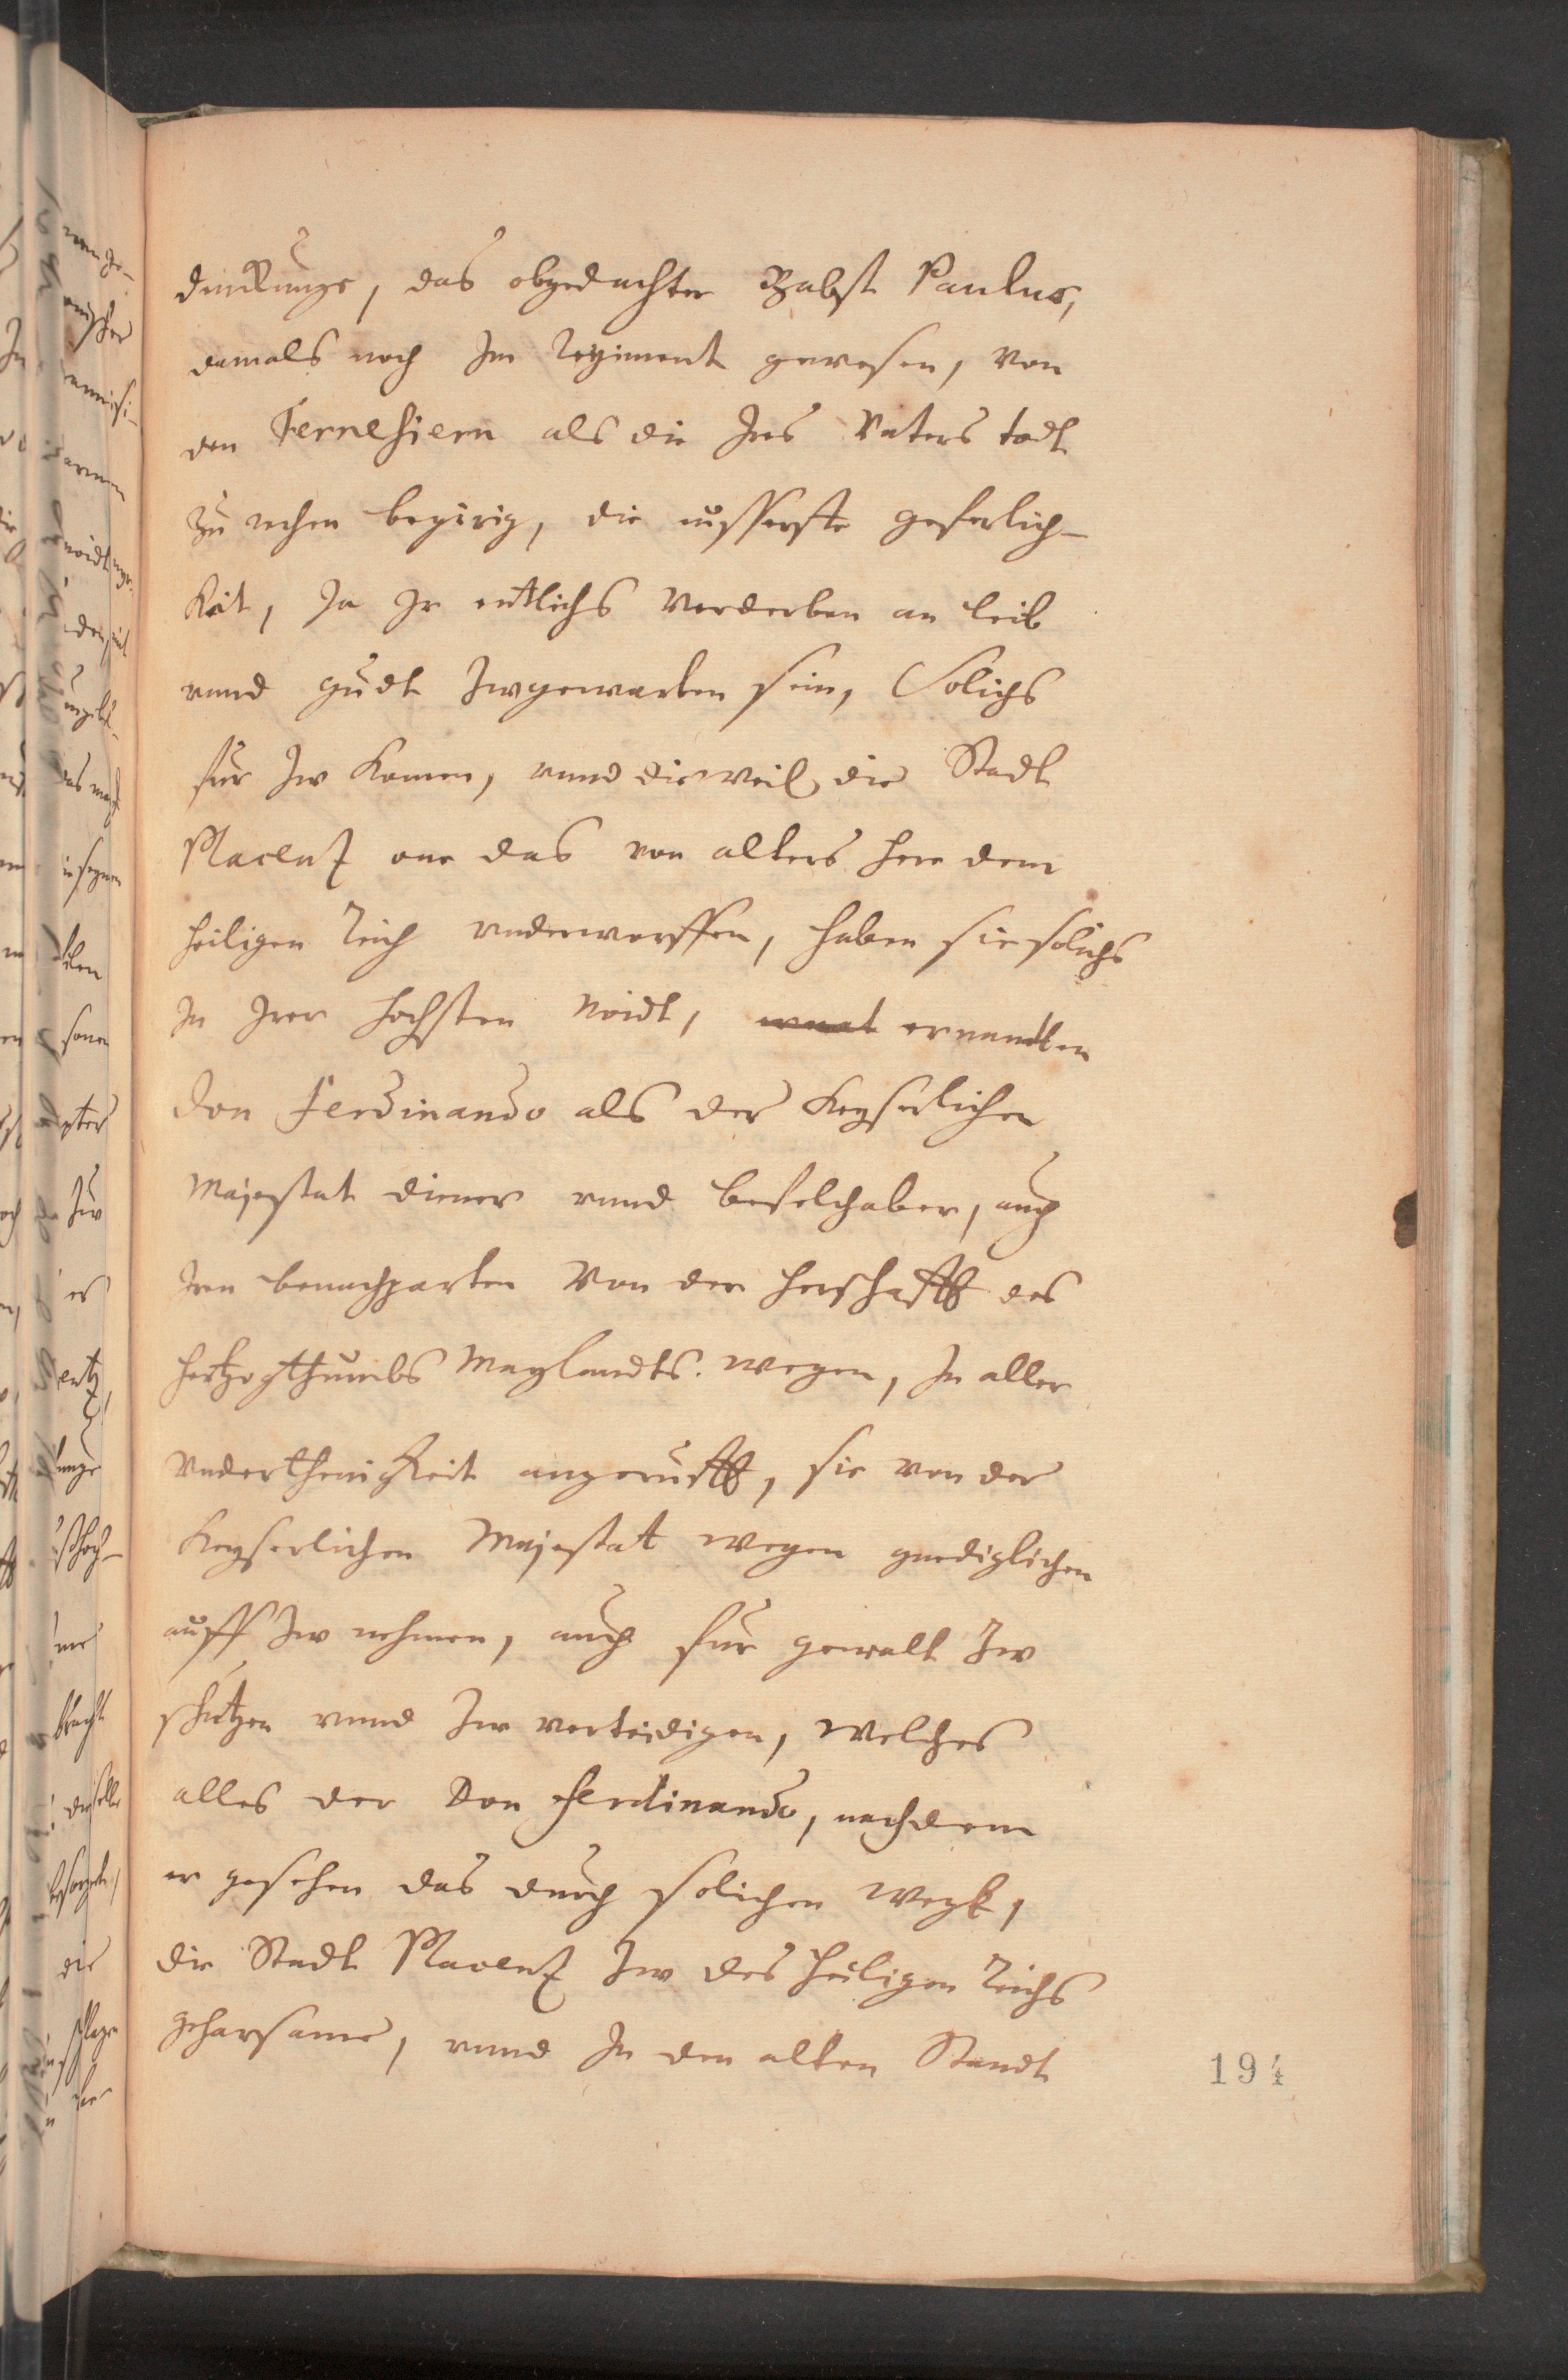 dinckunge, das obgedachter Babst Paulus,
damals noch Im Regiment gewesen, von
den Fernesiern als die Irs Vaters todt
zu rechen begirig, die eusserste geferlich-
keit, Ja Ir entlichs verderben an leib
vnnd gudt Zwgewarten sein, Solichs
fur Zw komen, vnnd dieweil die Stadt
Placentz one das von alters here dem
heiligen Reich vnderworffen, haben sie solichs
In Irer hochsten noidt, ernandten
Don Ferdinando als der Keyserlichen
Majestat diener vnnd befelchaber, auch
Iren benachparten von der herschafft des
hertzogthumbs Maylandts. wegen, In aller
vnderthenigkeit angerufft, sie von der
Keyserlichen Majestat wegen gnediglichen
auff Zw nehmen, auch fur gewalt Zw
schutzen vnnd Zw verteidigen, welches
alles der Don Ferdinando, nachdem
er gesehen das durch solichen wegk,
die Stadt Placentz Zw des heiligen Reichs
gehorsame, vnnd In den alten Standt
194